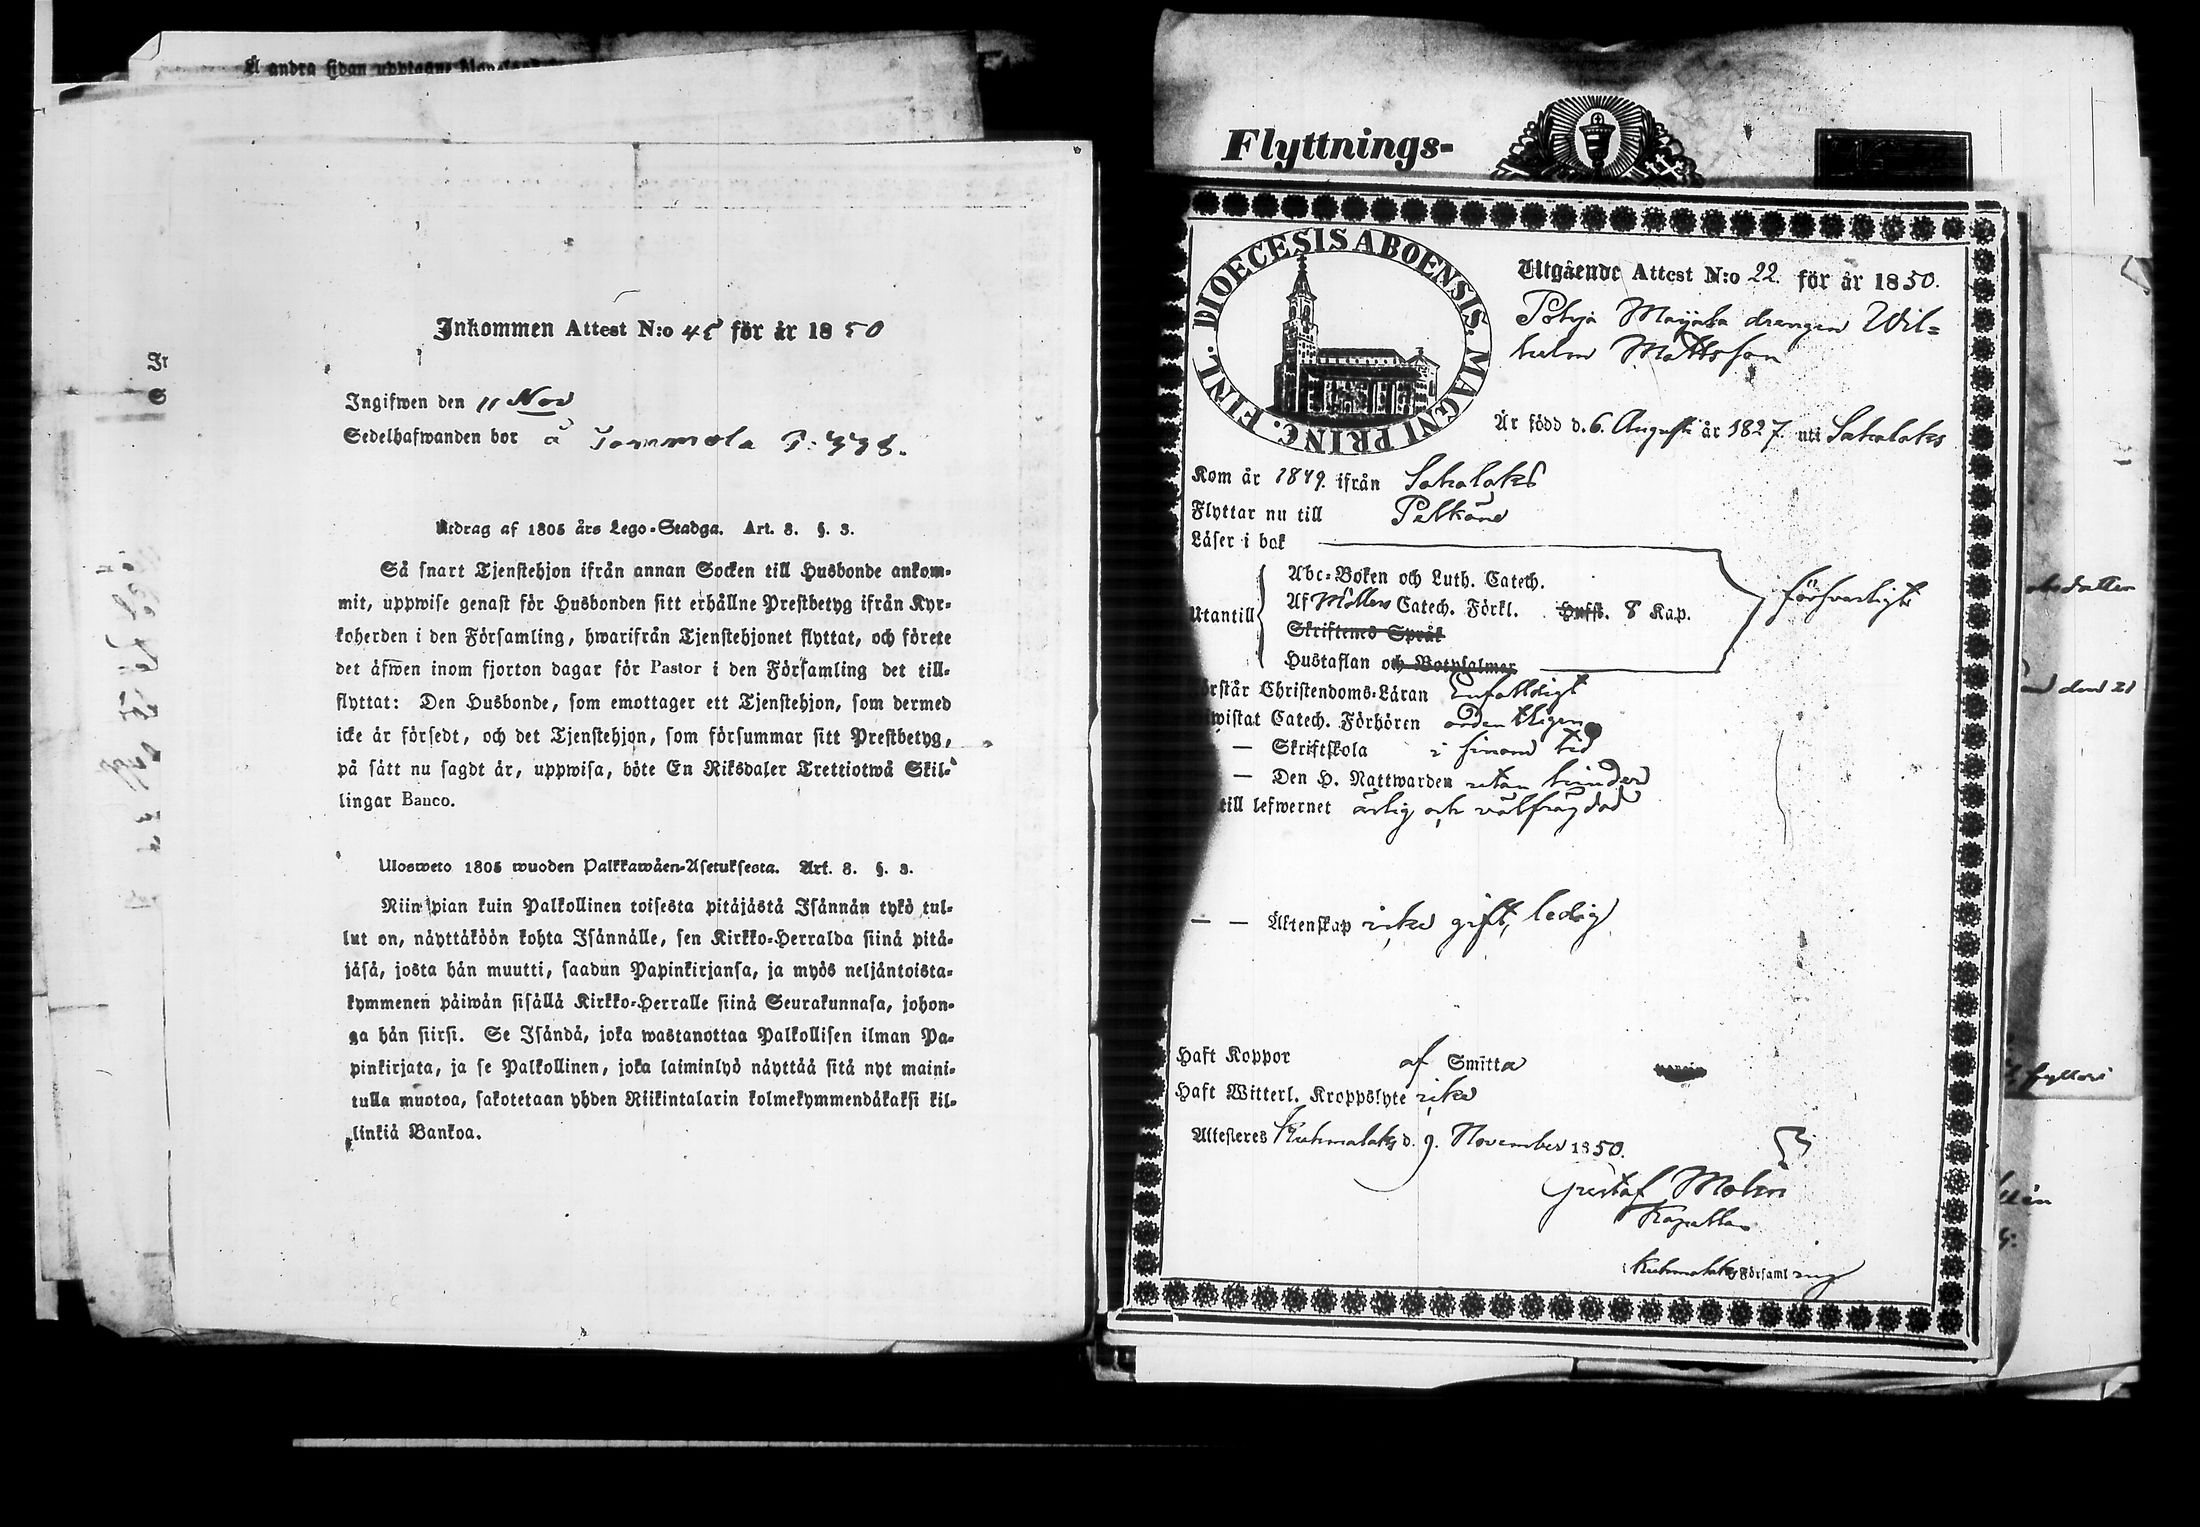 Å andra sidan upptagne
Inkommen Attest N:o 45 för år 1850
Ingifwen den 11 Nov
Sedelhafwanden bor å Tommola P. 448.
Utdrag af 1805 års Lego-Stadga. Art. 8. §. 3.
Så snart Tjenstehjon ifrån annan Socken till Husbonde ankom-
mit, uppwise genast för Husbonden sitt erhållne Prestbetyg ifrån Kyr-
koherden i den Församling, hwarifrån Tjenstehjonet flyttat, och förete
det åfwen inom fjorton dagar för Pastor i den Församling det till-
flyttat: Den Husbonde, som emottager ett Tjenstehjon, som dermed
icke är försedt, och det Tjenstehjon, som försummar sitt Prestbetyg,
på sätt nu sagdt är, uppwisa, böte En Riksdaler Trettiotwå Skil-
lingar Banco.
Ulosweto 1805 wuoden Palkkawäen-Asetuksesta. Art. 8. §. 3.
Niin pian kuin Palkollinen toisesta pitäjästä Isännän tykö tul-
lut on, näyttäköön kohta Isännälle, sen Kirkko-Herralda siinä pitä-
jäsä, josta hän muutti, saadun Papinkirjansa, ja myös neljäntoista-
kymmenen päiwän sisällä Kirkko-Herralle siinä Seurakunnasa, johon-
ga hän siirsi. Se Isändä, joka wastanottaa Palkollisen ilman Pa-
pinkirjata, ja se Palkollinen, joka laiminlyö näyttää sitä nyt maini-
tulla muotoa, sakotetaan yhden Riikintalarin kolmekymmendäkaksi kil-
linkiä Bankoa.
Flyttnings-
DIOECESIS ABOENSIS. MAGNI PRINC. FINL.
Utgående Attest N:o 22 för år 1850.
Pohja Maijala drengen Wil-
helm Mattsson
Är född d. 6. Augusti år 1827. uti Sahalaks
Kom år 1849. ifrån Sahalaks
Flyttar nu till Pelkäne
Läser i bok
Abc-Boken och Luth. Catech.
Utantill Af Möllers Catech. Förkl. Hufst. 8 Kap. försvarligt
Skriftenes Språk
Hustaflan och Botpsalmer
örstår Christendoms-Läran Enfaldigt
wistat Catech. Förhören ordentligen
— Skriftskola i sinom tid
— Den H. Nattwarden utan hinder
till lefwernet ärlig och välfräjdad
— — Äktenskap icke gift, ledig
Haft Koppor af Smitta
Haft Witterl. Kroppslyte icke
Attesteres Kuhmalaks d. 9. November 1850.
Gustaf Molin
Kapellan
i Kuhmalaks Församling